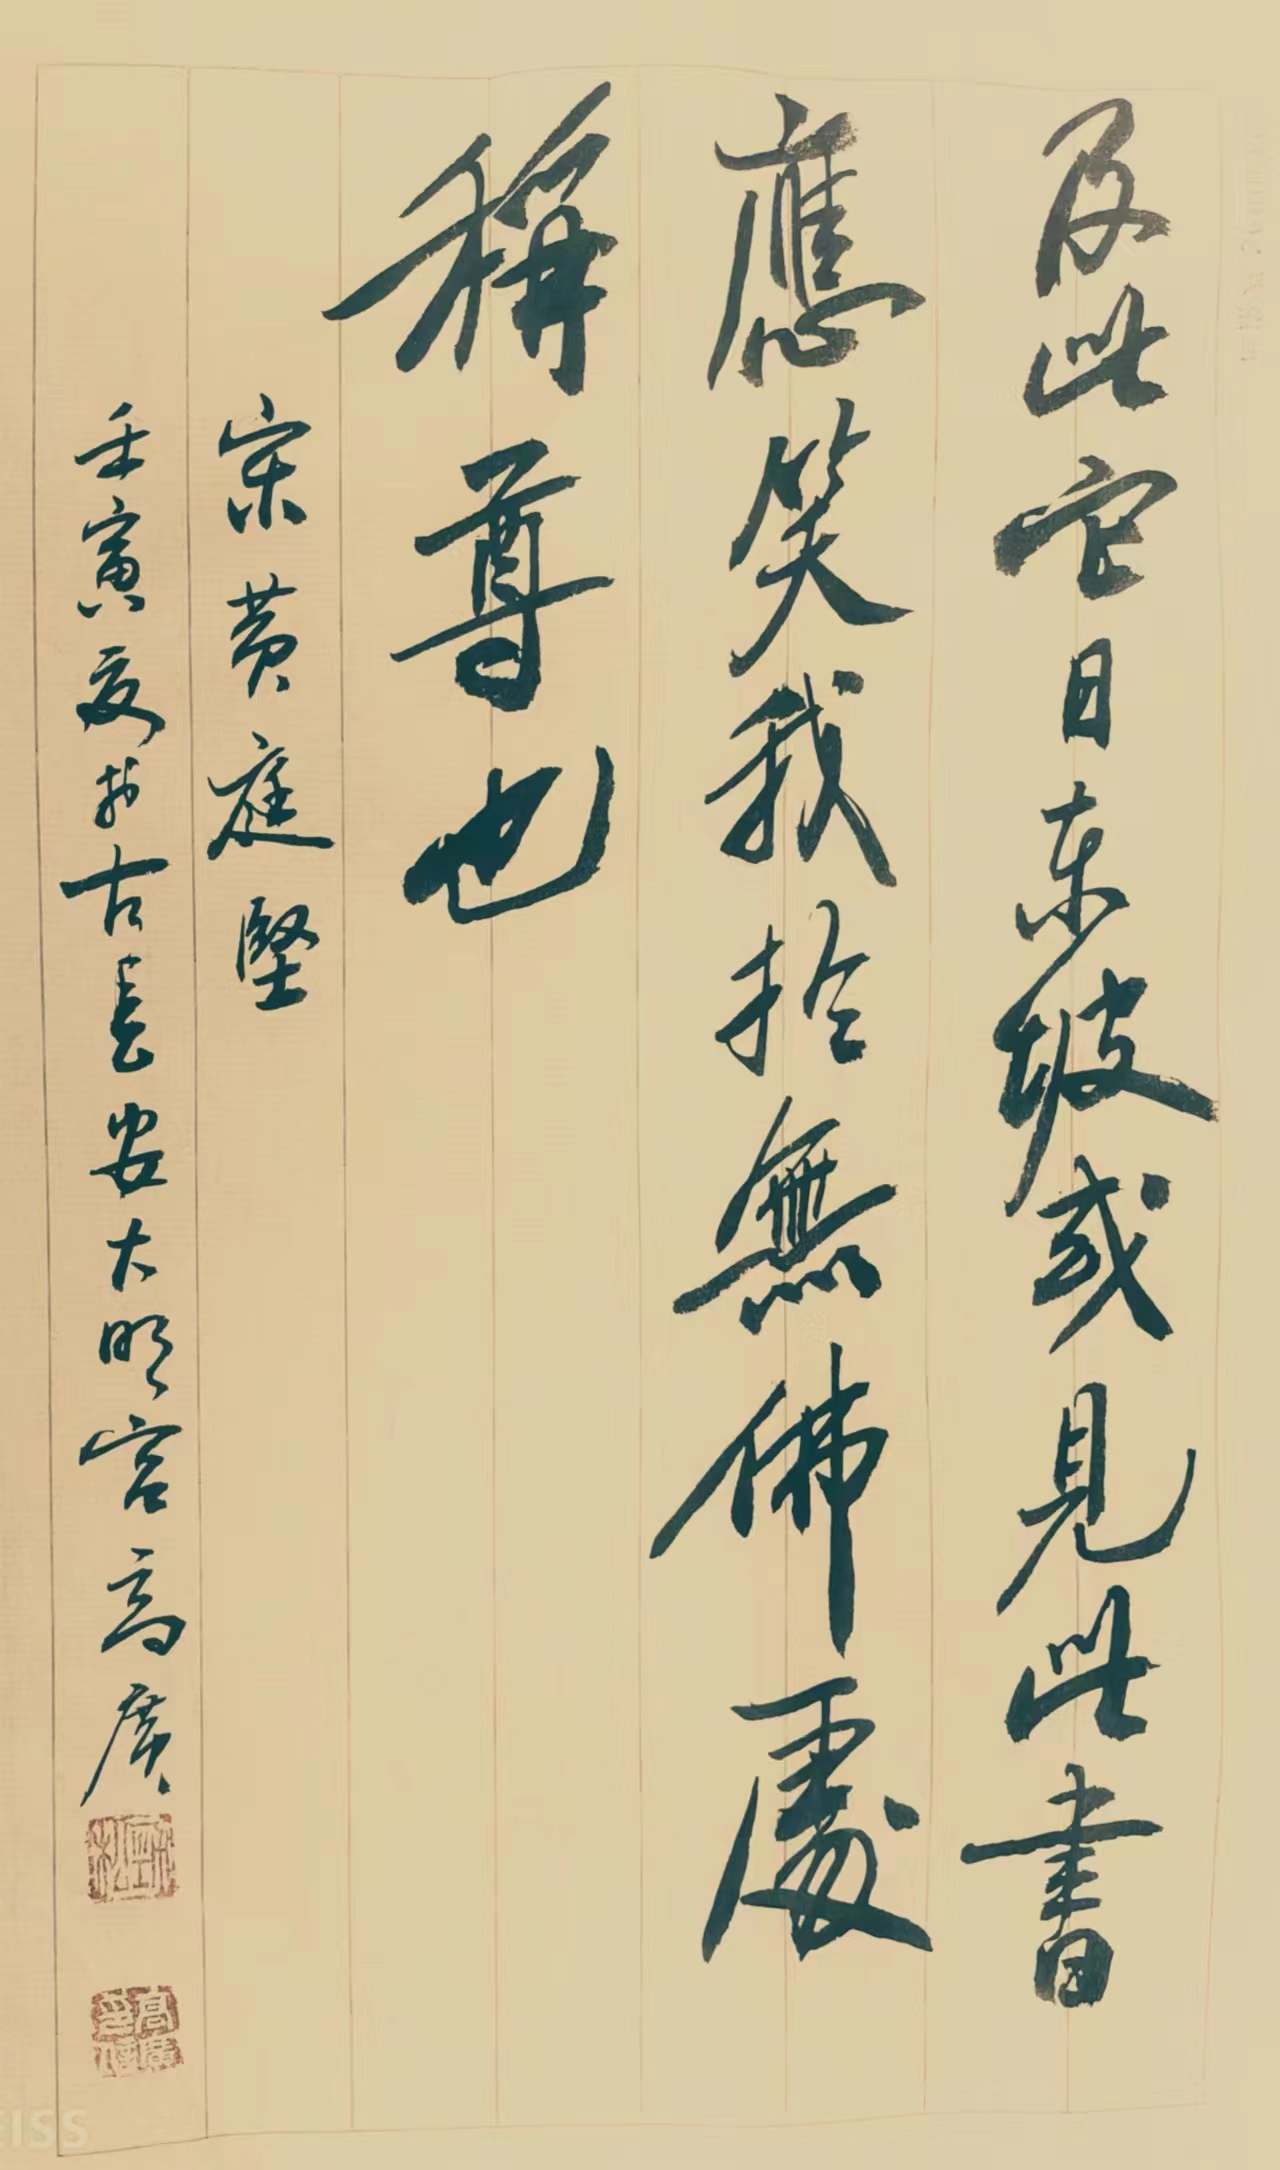 及此它日东坡或见此書
應笑我於無佛處
稱尊也
宋黄庭堅
壬寅夏於古長安大明宫高廣
EISS